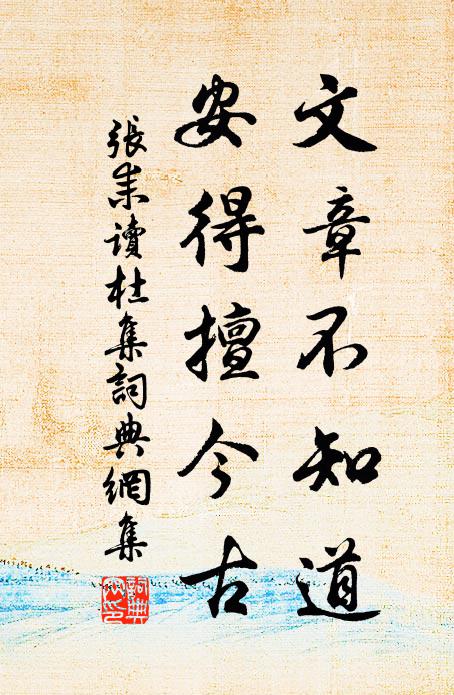 文章不知道
安得擅今古
張耒讀杜集詞典網集